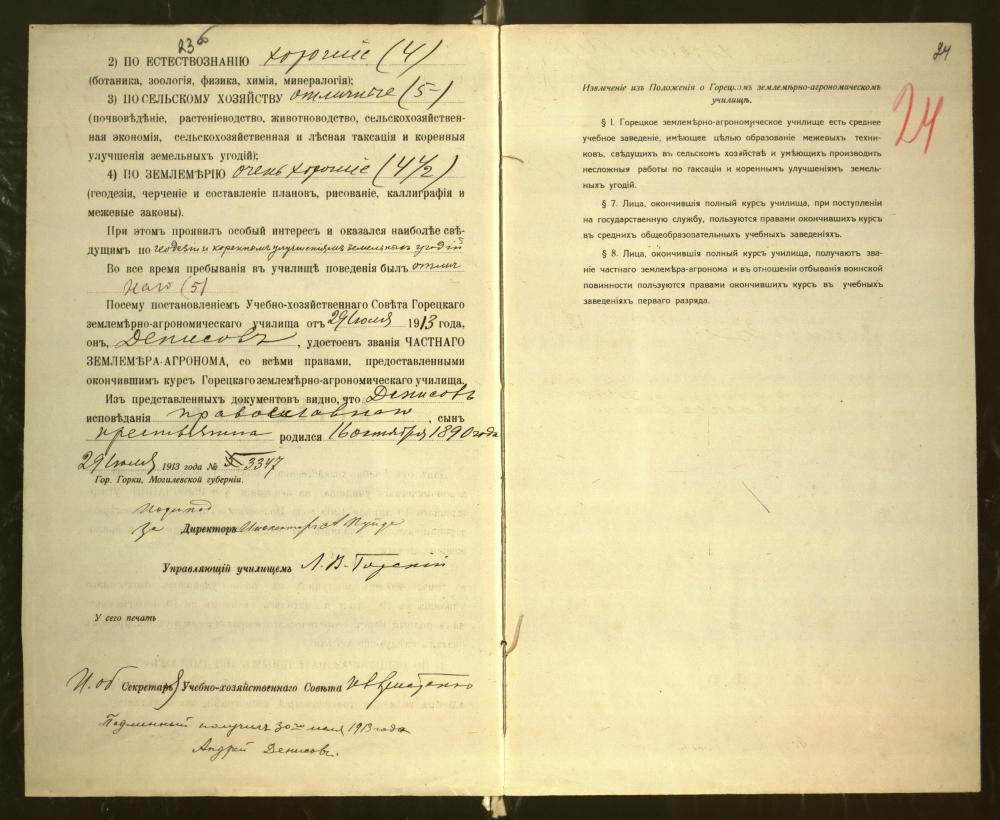 23б
2) ПО ЕСТЕСТВОЗНАНІЮ хорошіе (4)
(ботаника, зоологія, физика, химія, минералогія);
3) ПО СЕЛЬСКОМУ ХОЗЯЙСТВУ отличные (5-)
(почвовѣдѣніе, растеніеводство, животноводство, сельскохозяйствен-
ная экономія, сельскохозяйственная и лѣсная таксація и коренныя
улучшенія земельныхъ угодій);
4) ПО ЗЕМЛЕМѢРІЮ очень хорошіе (4½)
(геодезія, черченіе и составленіе плановъ, рисованіе, каллиграфія и
межевые законы).
При этомъ проявилъ особый интересъ и оказался наиболѣе свѣ-
дущимъ по геодезіи и кореннымъ улучшеніямъ земельныхъ угодій
Во все время пребыванія въ училищѣ поведенія былъ отлич
наго (5)
Посему постановленіемъ Учебно-хозяйственнаго Совѣта Горецкаго
землемѣрно-агрономическаго училища отъ 29 Іюля 1913 года,
онъ, Денисовъ, удостоенъ званія ЧАСТНАГО
ЗЕМЛЕМѢРА-АГРОНОМА, со всѣми правами, предоставленными
окончившимъ курсъ Горецкаго землемѣрно-агрономическаго училища.
Изъ представленныхъ документовъ видно, что Денисовъ
исповѣданія православнаго, сынъ
крестьянина родился 16 октября 1890 года
29 Іюля 1913 года № 3347
Гор. Горки, Могилевской губерніи.
За Директоръ Инспекторъ А Пуйде
Управляющій училищемъ Л. В. Горскій
У сего печать
И. об Секретаря Учебно-хозяйственнаго Совѣта
Подлинный получилъ 30го іюля 1913 года
Андрей Денисовъ.
24
24
Извлеченіе изъ Положенія о Горецкомъ землемѣрно-агрономическомъ
училищѣ.
§ 1. Горецкое землемѣрно-агрономическое училище есть среднее
учебное заведеніе, имѣющее цѣлью образованіе межевыхъ техни-
ковъ, свѣдущихъ въ сельскомъ хозяйствѣ и умѣющихъ производить
несложныя работы по таксаціи и кореннымъ улучшеніямъ земель-
ныхъ угодій.
§ 7. Лица, окончившія полный курсъ училища, при поступленіи
на государственную службу, пользуются правами окончившихъ курсъ
въ среднихъ общеобразовательныхъ учебныхъ заведеніяхъ.
§ 8. Лица, окончившія полный курсъ училища, получаютъ зва-
ніе частнаго землемѣра-агронома и въ отношеніи отбыванія воинской
повинности пользуются правами окончившихъ курсъ въ учебныхъ
заведеніяхъ перваго разряда.